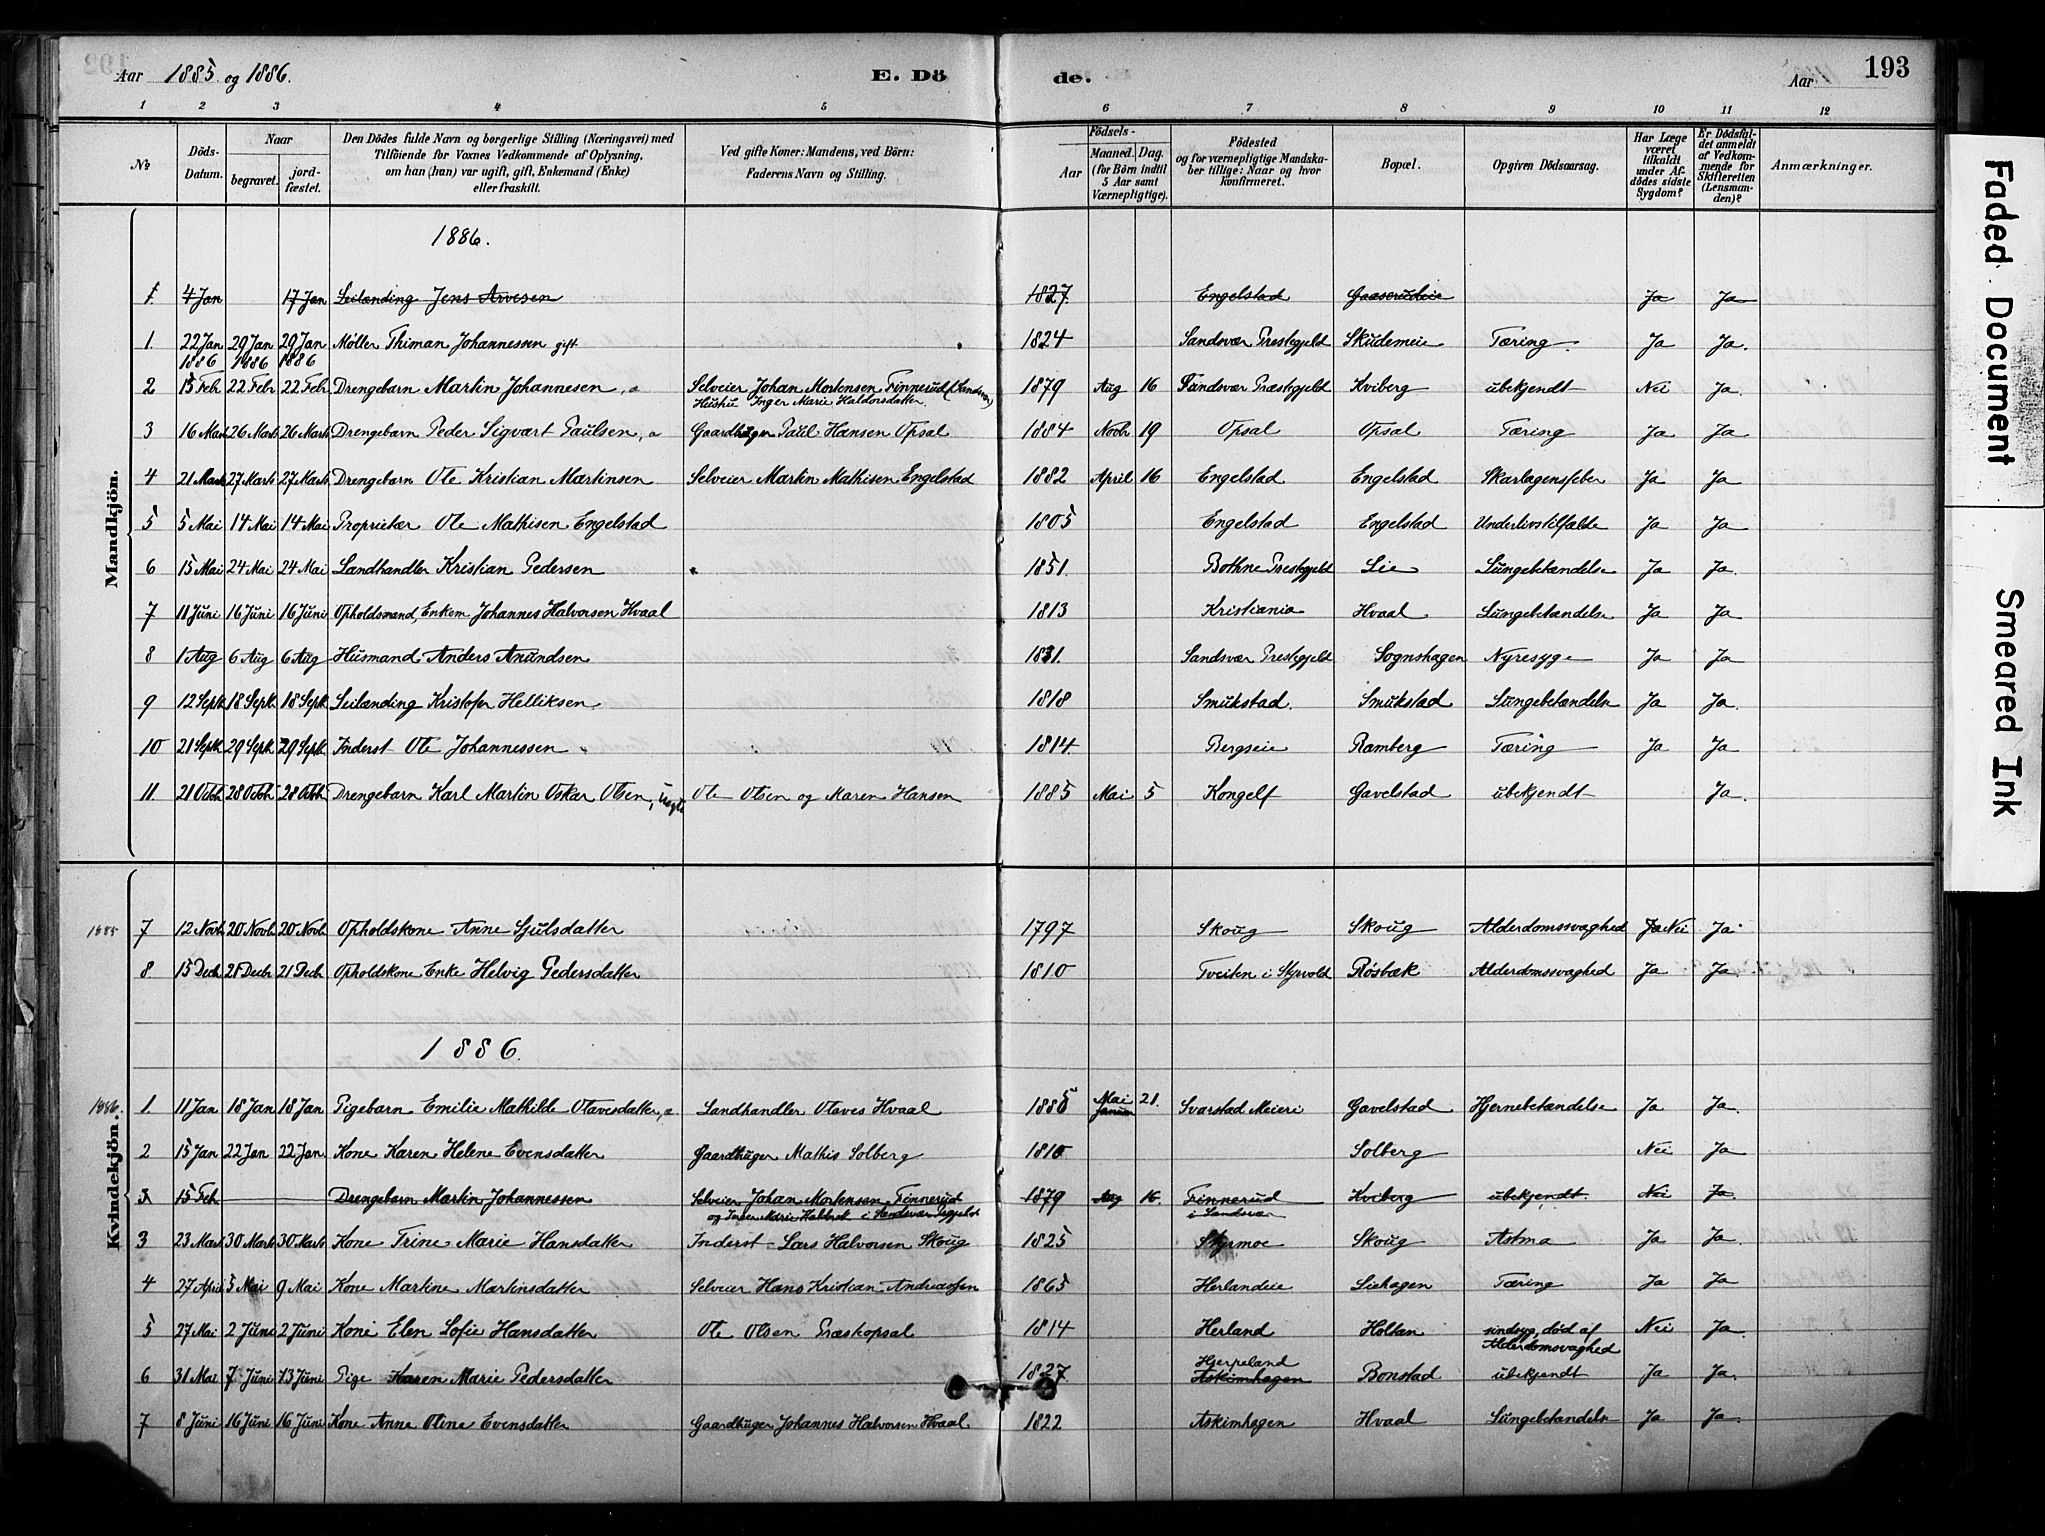 Aar 1885 og 1886.
E. Dö de.
Aar
193
1 2 3 4 5 6 7 8 9 10 11 12
No
Döds-Datum.
Naar
begravet.
jord-fæstet.
Den Dödes fulde Navn og borgerlige Stilling (Næringsvei) med
Tilföiende for Voxnes Vedkommende af Oplysning,
om han (hun) var ugift, gift, Enkemand (Enke)
eller fraskilt.
Ved gifte Koner: Mandens, ved Börn:
Faderens Navn og Stilling.
Födsels-
Aar
Maaned. Dag.
(for Börn indtil
5 Aar samt
Værnepligtige).
Födested
og for værnepligtige Mandska-
ber tillige: Naar og hvor
konfirmeret.
Bopæl.
Opgiven Dödsaarsag.
Har Læge
været
tilkaldt
under Af-
dödes sidste
Sygdom?
Er Dödsfal-
det anmeldt
af Vedkom-
mende for
Skifteretten
(Lensman-
den)?
Anmærkninger.
Mandkjön.
1886.
1. 4 Jan 17 Jan Leilænding Jens Arvesen 1827 Engelstad Gaaserudeie Ja Ja
1. 22 Jan 1886 29 Jan 1886 29 Jan 1886 Møller Thiman Johannessen gift 1824 Sandsvær Prestegjeld Skudemeie Tæring Ja Ja.
2 15 Febr 22 Febr 22 Febr Drengebarn Martin Johannesen, Selveier Johan Mortensen Finnerud (Sandsvær) 1879 Aug 16 Sandsvær Præstegjeld Kviberg ubekjendt Nei Ja.
Hustru Inger Marie Haldorsdatter.
3 16 Mart 26 Mart 26 Mart Drengebarn Peder Sigvart Paulsen, Gaardbruger Paul Hansen Opsal 1884 Novb 19 Opsal Opsal Tæring Ja Ja
4 21 Mart 27 Mart 27 Mart Drengebarn Ole Kristian Martinsen Selveier Martin Mathisen Engelstad 1882 April 16 Engelstad Engelstad Skarlagensfeber Ja Ja
5 5 Mai 14 Mai 14 Mai Proprietær Ole Mathisen Engelstad 1805 Engelstad Engelstad Underlivstilfælde Ja Ja
6 15 Mai 24 Mai 24 Mai Landhandler Kristian Pedersen 1851. Bothne Prestegjeld Lie Lungebetændelse Ja Ja.
7 11 Juni 16 Juni 16 Juni Opholdsmand, Enkem. Johannes Halvorsen Hvaal 1813 Kristiania Hvaal Lungebetændelse Ja Ja
8 1 Aug 6 Aug 6 Aug Husmand Anders Anundsen 1831. Sandsvær Prestegjeld Sognshagen Nyresyge Ja Ja
9 12 Sept 18 Sept. 18 Sept. Leilænding Kristofer Helliksen 1818 Smukstad. Smukstad Lungebetændelse Ja Ja.
10 21 Sept 29 Sept. 29 Sept. Inderst Ole Johannessen 1814 Bergseie Ramberg Tæring Ja Ja
11 21 Octb 28 Octb 28 Octb Drengebarn Karl Martin Oskar Olsen, uægte Ole Olsen og Maren Hansen 1885 Mai 5 Kongelf Gavelstad ubekjendt Ja.
Kvindekjön.
1885 7 12 Novb 20 Novb 20 Novb Opholdskone Anne Gjulsdatter 1797 Skoug Skoug Alderdomssvaghed Ja Nei Ja
8 15 Decb 21 Decbr 21 Decbr Opholdskone Enke Helvig Pedersdatter 1810 Tveiten i Styrvold Røsbæk Alderdomssvaghed Ja Ja
1886.
1886. 1. 11 Jan 18 Jan 18 Jan Pigebarn Emilie Mathilde Olavesdatter, Landhandler Olaves Hvaal 1885 Mai 21. Svarstad Meieri Gavelstad Hjernebetændelse Ja Ja.
Januar
2 15 Jan 22 Jan 22 Jan. Kone Karen Helene Evensdatter Gaardbruger Mathis Solberg 1810 Solberg Nei Ja
3. 15 Feb Drengebarn Martin Johannessen Selveier Johan Mortensen Finnerud 1879 Aug 16. Finnerud Kviberg ubekjendt. Nei Ja
og Inger Marie Haldorsd i Sandsvær Prgjeld i Sandsvær
3 23 Mart 30 Mart 30 Mart Kone Trine Marie Hansdatter Inderst Lars Halvorsen Skoug 1825 Styrmoe Skoug Astma Ja Ja.
4 27 April 5 Mai 9 Mai Kone Martine Martinsdatter Selveier Hans Kristian Andreassen 1865 Herlandeie Liehagen Tæring Ja Ja
5 27 Mai 2 Juni 2 Juni Kone Elen Sofie Hansdatter Ole Olsen Præstopsal 1814 Herland Holtan sindsyg, død af Nei Ja
Alderdomssvaghed
6 31 Mai 7 Juni 13 Juni Pige Karen Marie Pedersdatter 1827 Hjerpeland Bonstad ubekjendt Ja Ja.
Askimhagen
7 8 Juni 16 Juni 16 Juni Kone Anne Oline Evensdatter Gaardbruger Johannes Halvorsen Hvaal 1822 Askimhagen Hvaal Lungebetændelse Ja Ja
Faded Document
Smeared Ink